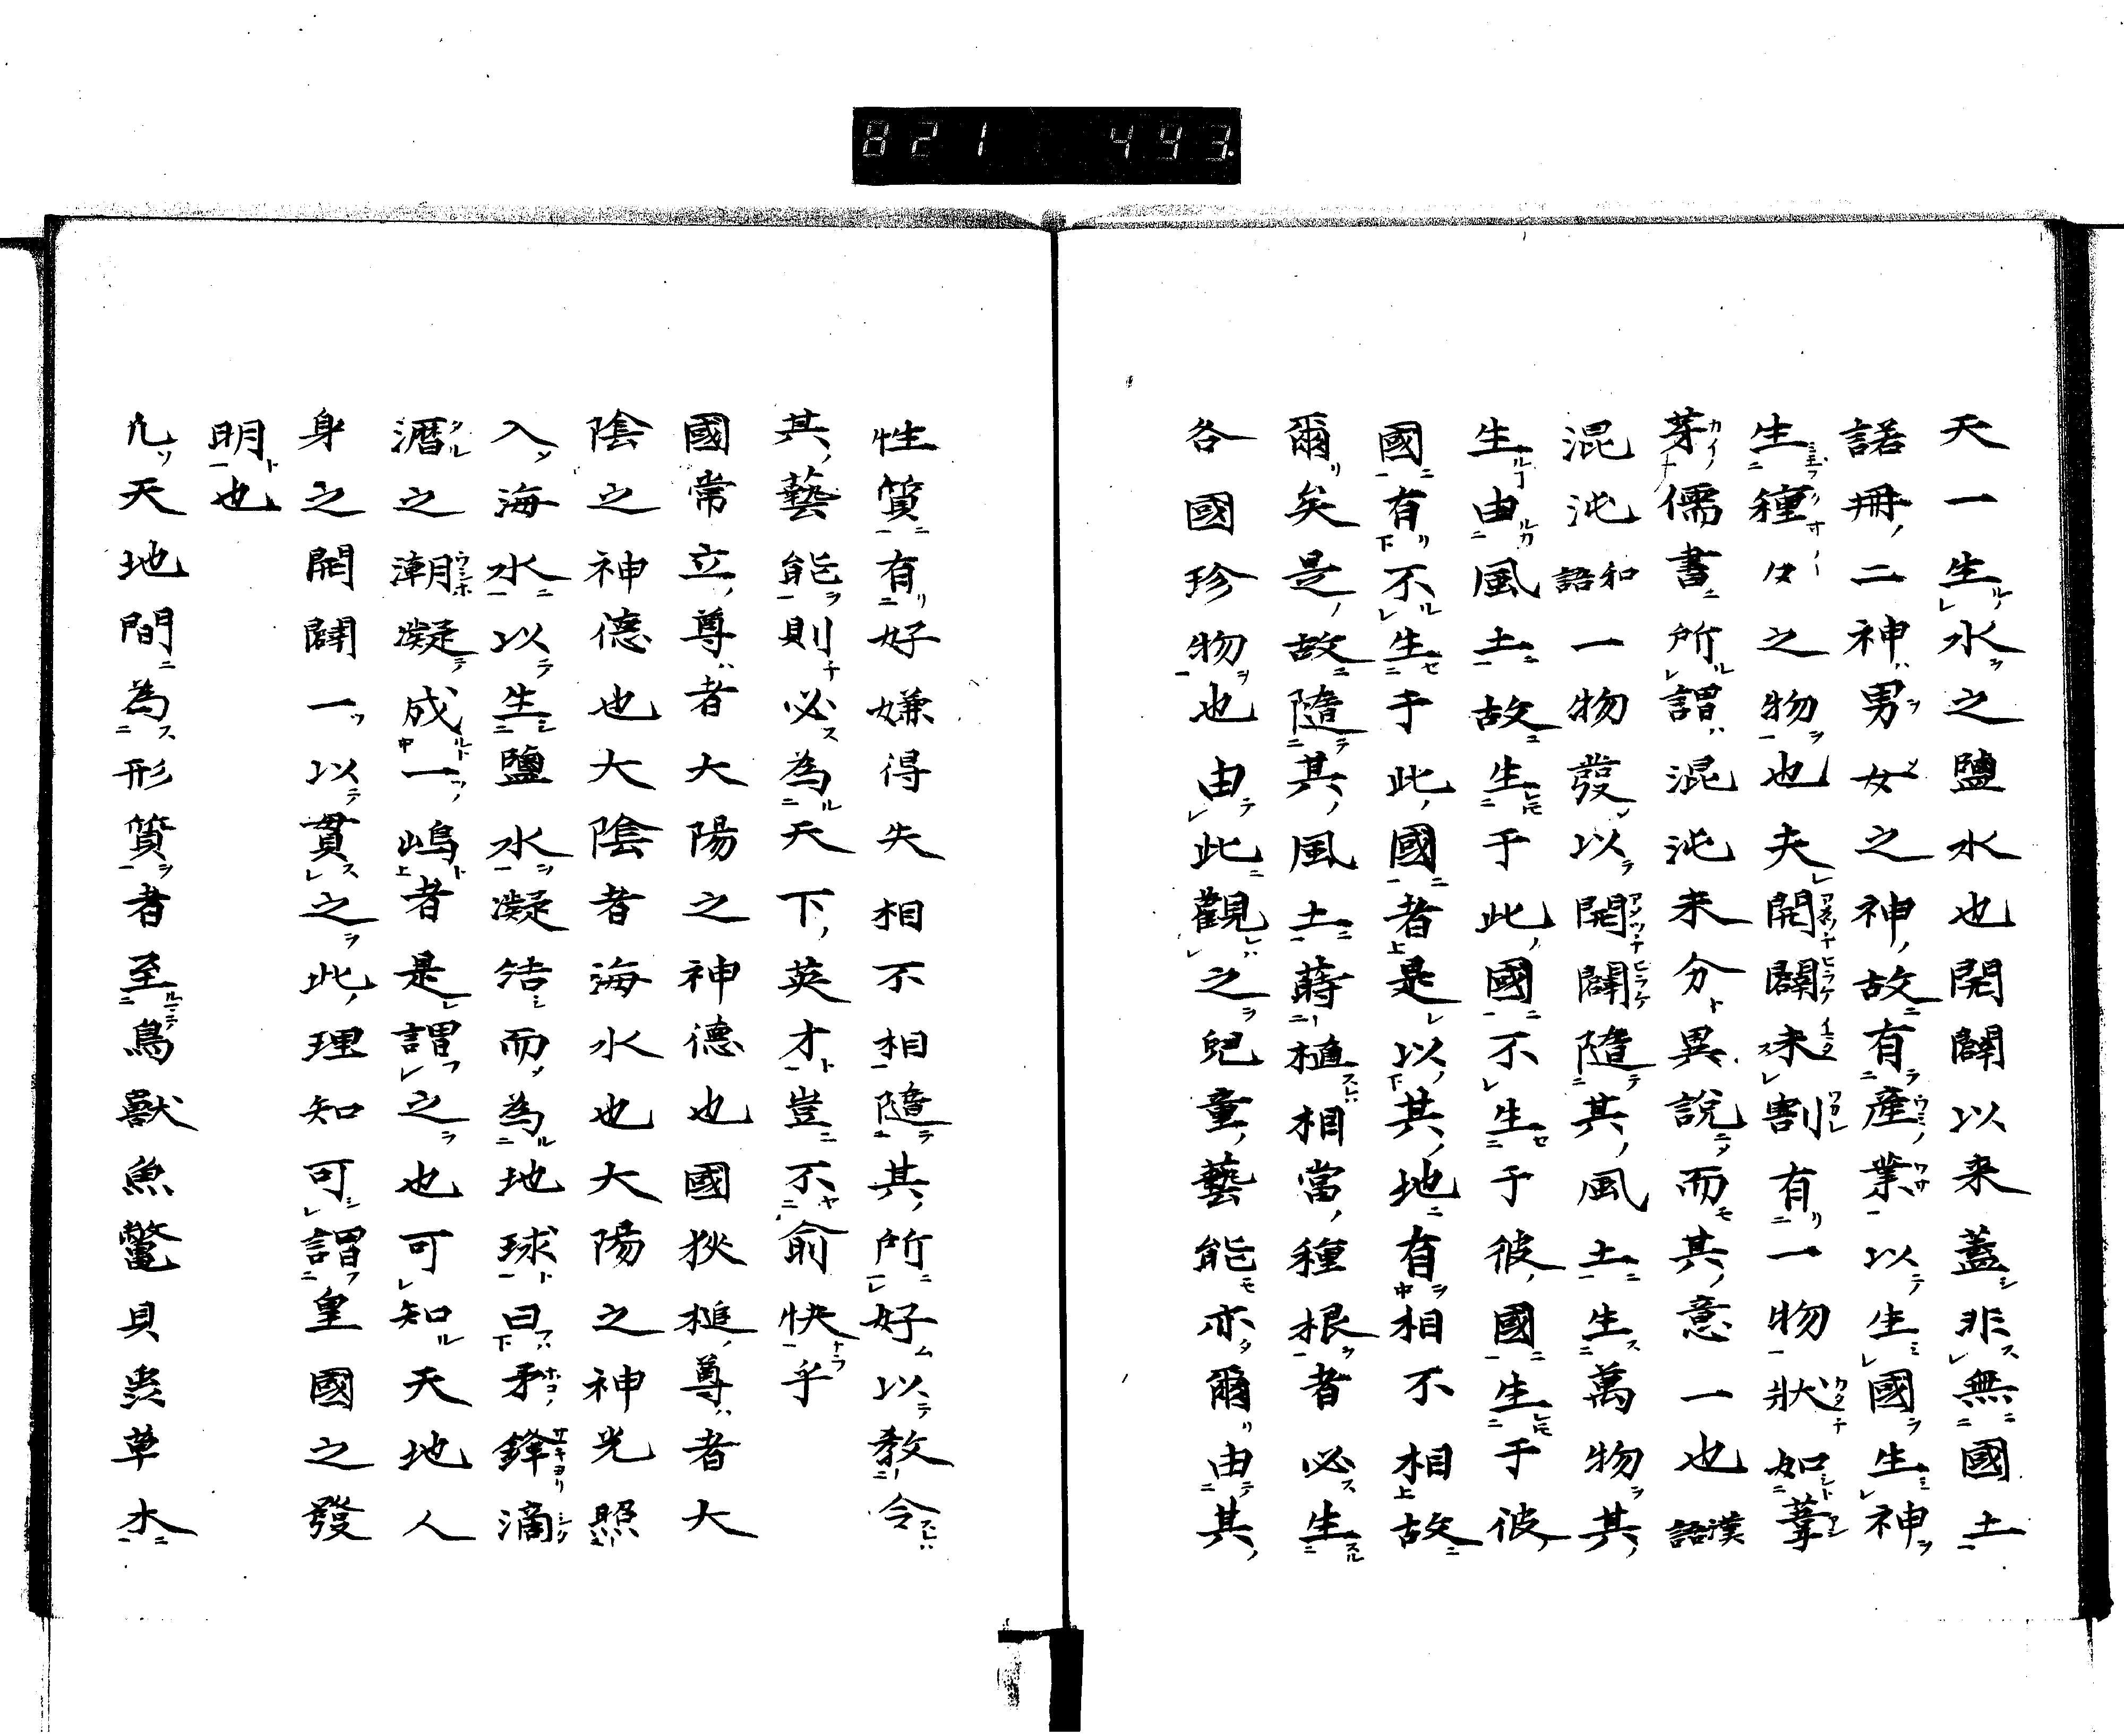 821 443
天一生水之鹽水也開闢以来蓋非無國土
諾冊二神男女之神故有産業以生國生神
生種々之物也夫開闢未割有一物狀如葦
芽儒書所謂混沌未分異説而其意一也漢語
混沌和語一物發以開闢隨其風土生萬物其
生由風土故生于此國不生于彼國生于彼
國有不生于此國者是以其地有相不相故
爾矣是故隨其風土蒔植相當種根者必生
各國珍物也由此觀之兒童藝能亦爾由其
性質有好嫌得失相不相隨其所好以教令
其藝能則必為天下英才豈不俞快乎
國常立尊者大陽之神德也國狄槌尊者大
陰之神德也大陰者海水也大陽之神光照
入海水以生鹽水凝結而為地球曰矛鋒滴
瀝之潮凝成一嶋者是謂之也可知天地人
身之開闢一以貫之此理知可謂皇國之發
明也
凡天地間為形質者至鳥獸魚鼈貝蟲草木